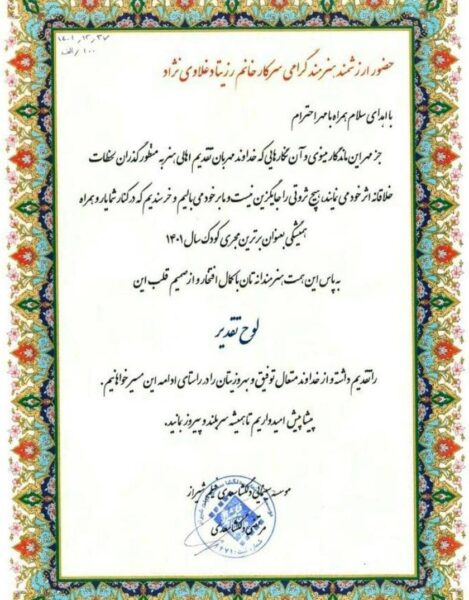 ۱۴۰۱,۱۲,۲۷
۱۰۰/الف
حضور ارزشمند هنرمند گرامی سرکار خانم رزیتا دغلاوی نژاد
با اهدای سلام همراه با مهر احترام
جز مهر این ماندگار مینوی و آن نگارهایی که خداوند مهربان تقدیم اهالی هنر به منظور گذران لحظات
خلاقانه اثر خود می نمایند، هیچ ثروتی را جایگزین نیست و ما بر خود می بالیم و خرسندیم که در کنار شما یار و همراه
همیشگی بعنوان برترین مجری کودک سال ۱۴۰۱
به پاس این همت هنرمندانه تان با کمال افتخار و از صمیم قلب این
لوح تقدیر
را تقدیم داشته و از خداوند متعال توفیق و بهروزیتان را در راستای ادامه این مسیر خواهانیم.
پیشاپیش امید داریم تا همیشه سربلند و پیروز بمانید.
موسسه سینمایی دلگشا سعدی فیلم شیراز
مرتضی دلگشا سعدی